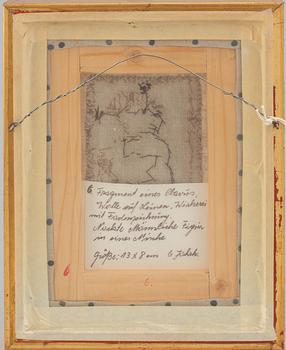 6 Fragment eines Clavus,
Wolle auf Leinen, Wirkerei
mit Fadenzeichnung.
Nackte Männliche Figur
in einer Nische
Größe: 13 x 8 cm 6 Jahrh.
6
6.